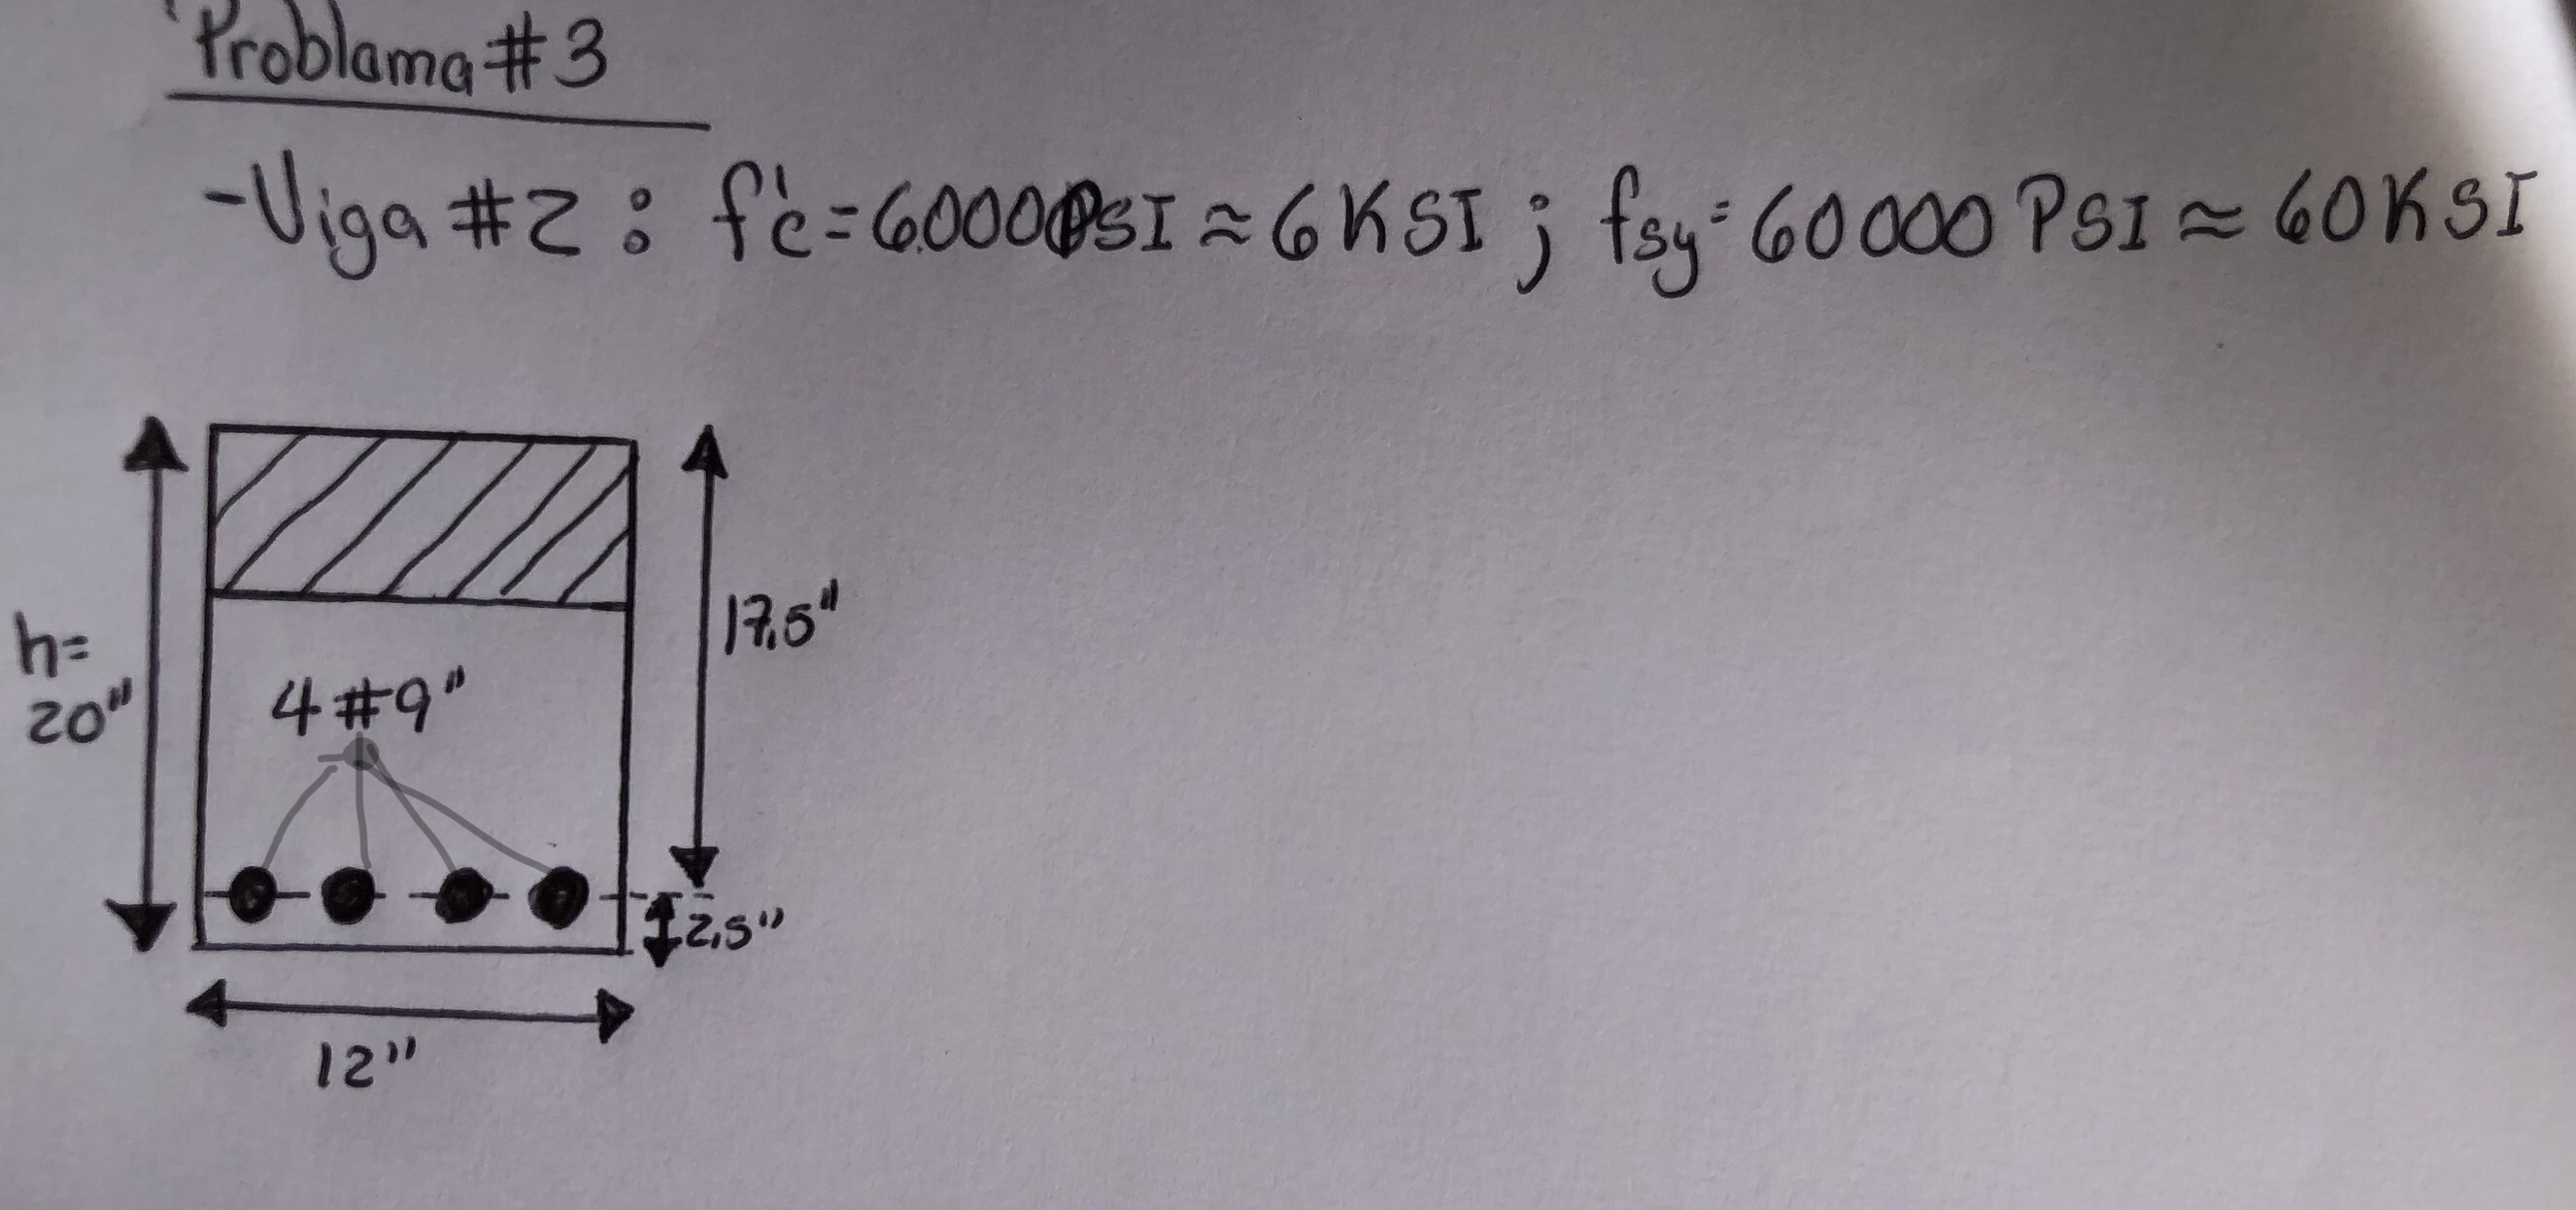 Problama #3
-Viga #2 : f'c=6000PSI ≈ 6KSI ; fsy=60000 PSI ≈ 60KSI
h=
20"
17.5"
4#9"
2.5"
12"